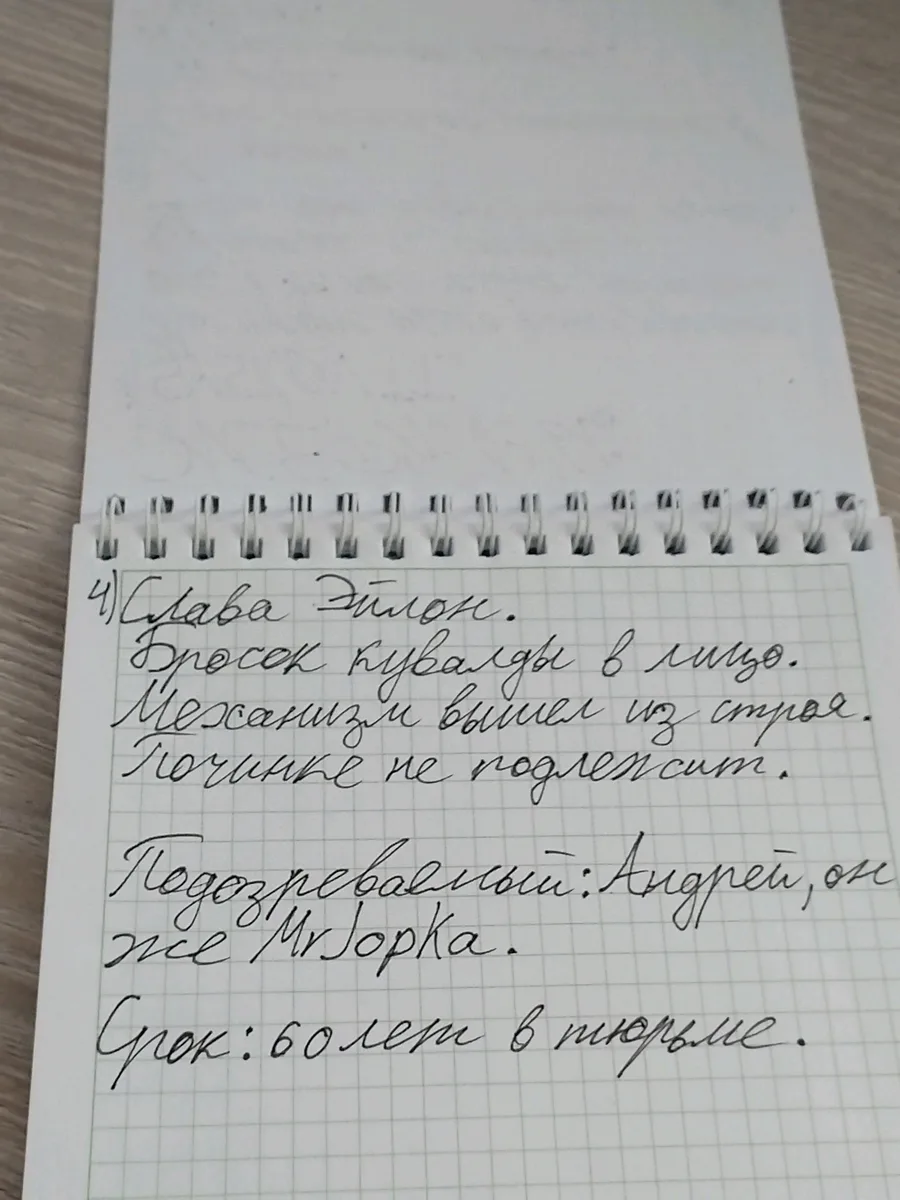 4) Слава Эйлон.
Бросок кувалды в лицо.
Механизм вышел из строя.
Починке не подлежит.
Подозреваемый: Андрей, он
же MrJopKa.
Срок: 60 лет в тюрьме.